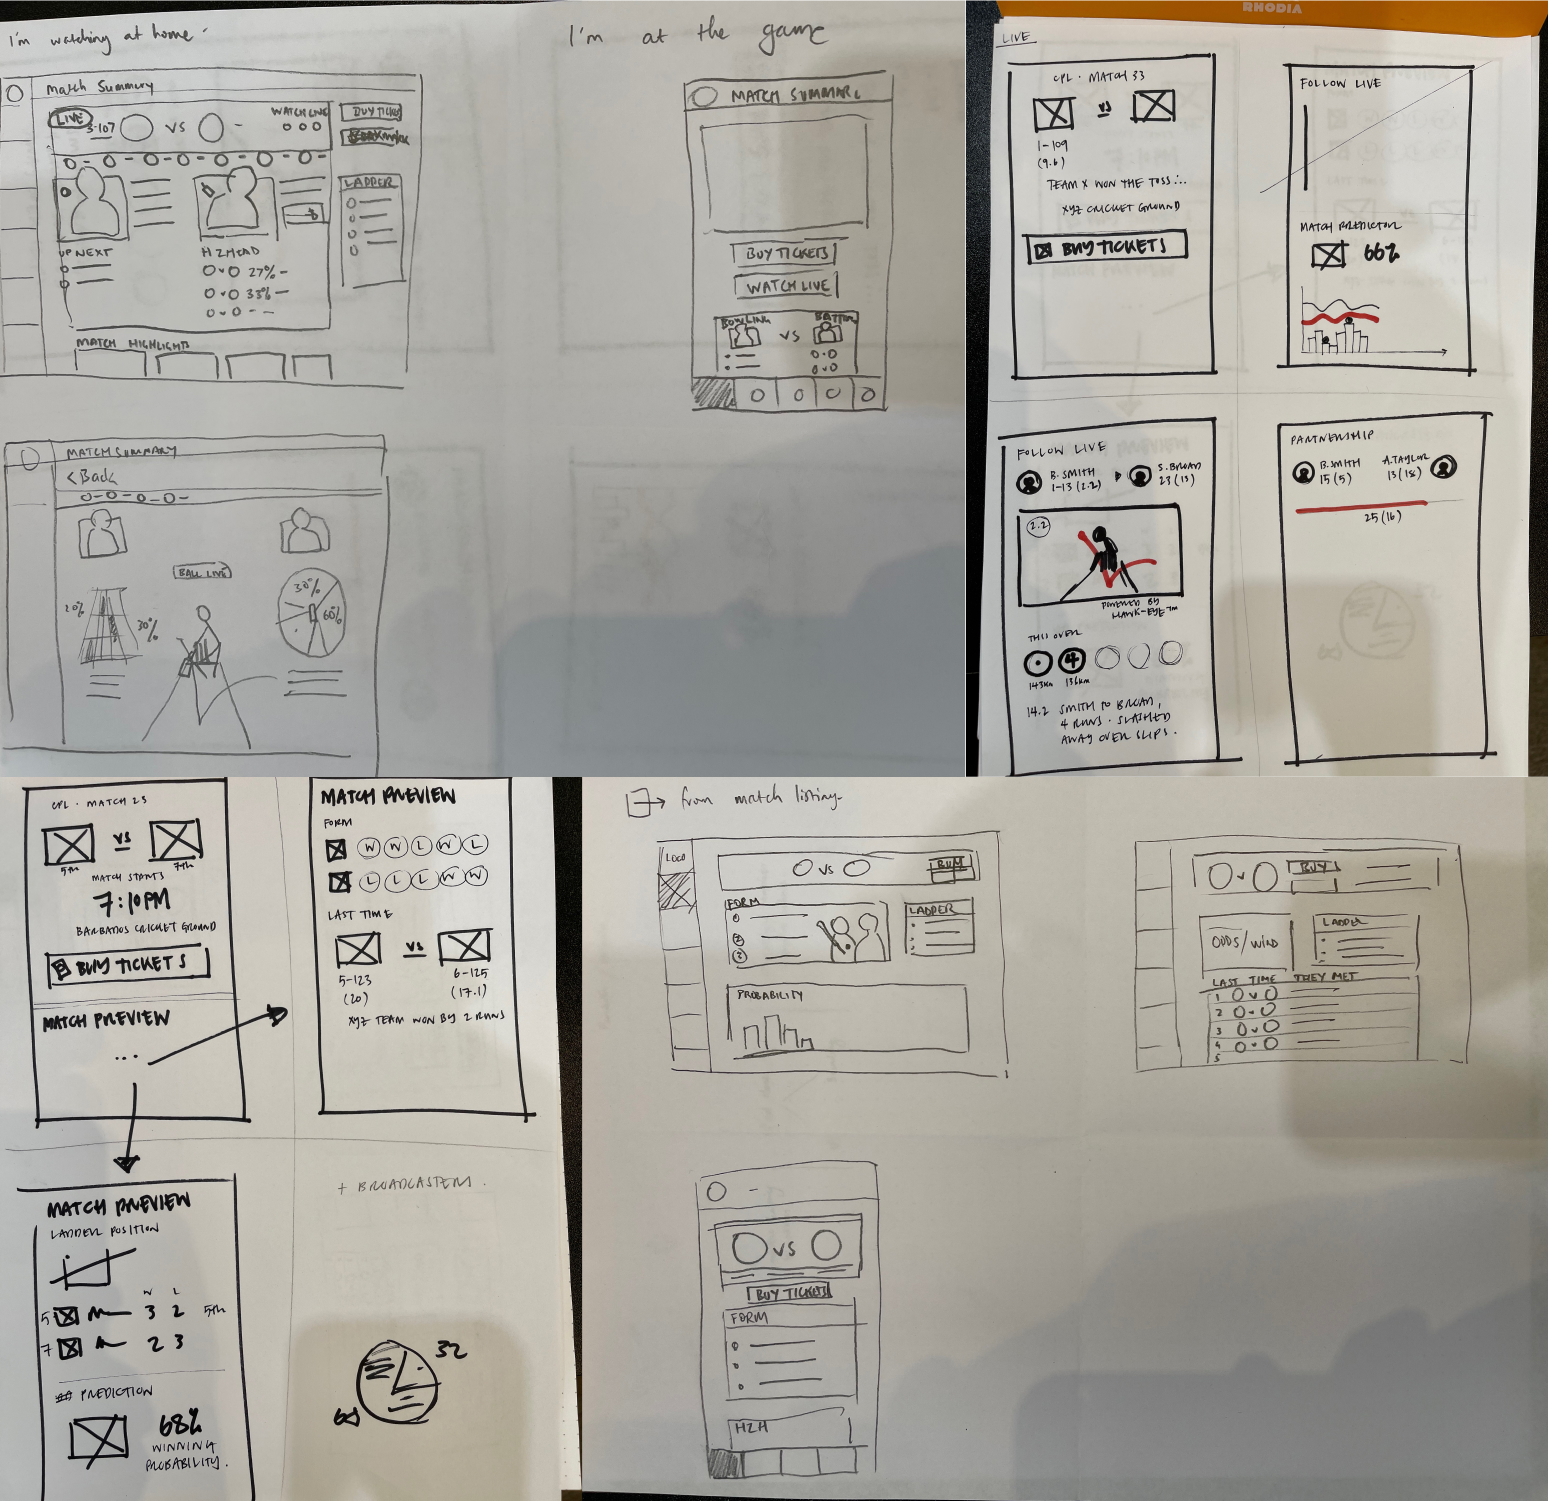 I'm watching at home
Match Summary
LIVE
3-107
VS
WATCH LIVE
BUY TICKETS
LADDER
UP NEXT
H2HEAD
27%
33%
MATCH HIGHLIGHTS
I'm at the game
MATCH SUMMARY
BUY TICKETS
WATCH LIVE
BOWLING
VS
BATTING
MATCH SUMMARY
<Back
BALL LIVE
20%
30%
30%
60%
RHODIA
LIVE
CPL · MATCH 33
VS
1-109
(9.6)
TEAM X WON THE TOSS...
XYZ CRICKET GROUND
BUY TICKETS
FOLLOW LIVE
MATCH PREDICTOR
66%
FOLLOW LIVE
B. SMITH
1-13 (2.2)
S. BROAD
23 (13)
2.2
POWERED BY
HAWK-EYE TM
THIS OVER
4
143KM
136KM
14.2 SMITH TO BROAD,
4 RUNS. SLASHED
AWAY OVER SLIPS.
PARTNERSHIP
B. SMITH
15 (5)
A. TAYLOR
13 (18)
25 (16)
CPL · MATCH 23
VS
5th
7th
MATCH STARTS
7:10PM
BARBADOS CRICKET GROUND
BUY TICKETS
MATCH PREVIEW
...
MATCH PREVIEW
FORM
W W L W L
L L L W W
LAST TIME
VS
5-123
(20)
6-125
(17.1)
XYZ TEAM WON BY 2 RUNS
MATCH PREVIEW
LADDER POSITION
W L
5 3 2 5th
7 2 3
PREDICTION
68%
WINNING
PROBABILITY.
+ BROADCASTERS.
32
from match listing.
LOGO
VS
BUY
FORM
1
2
3
LADDER
PROBABILITY
V
BUY
ODDS/WIND
LADDER
LAST TIME THEY MET
1 v
2 v
3 v
4 v
5
VS
BUY TICKETS
FORM
H2H